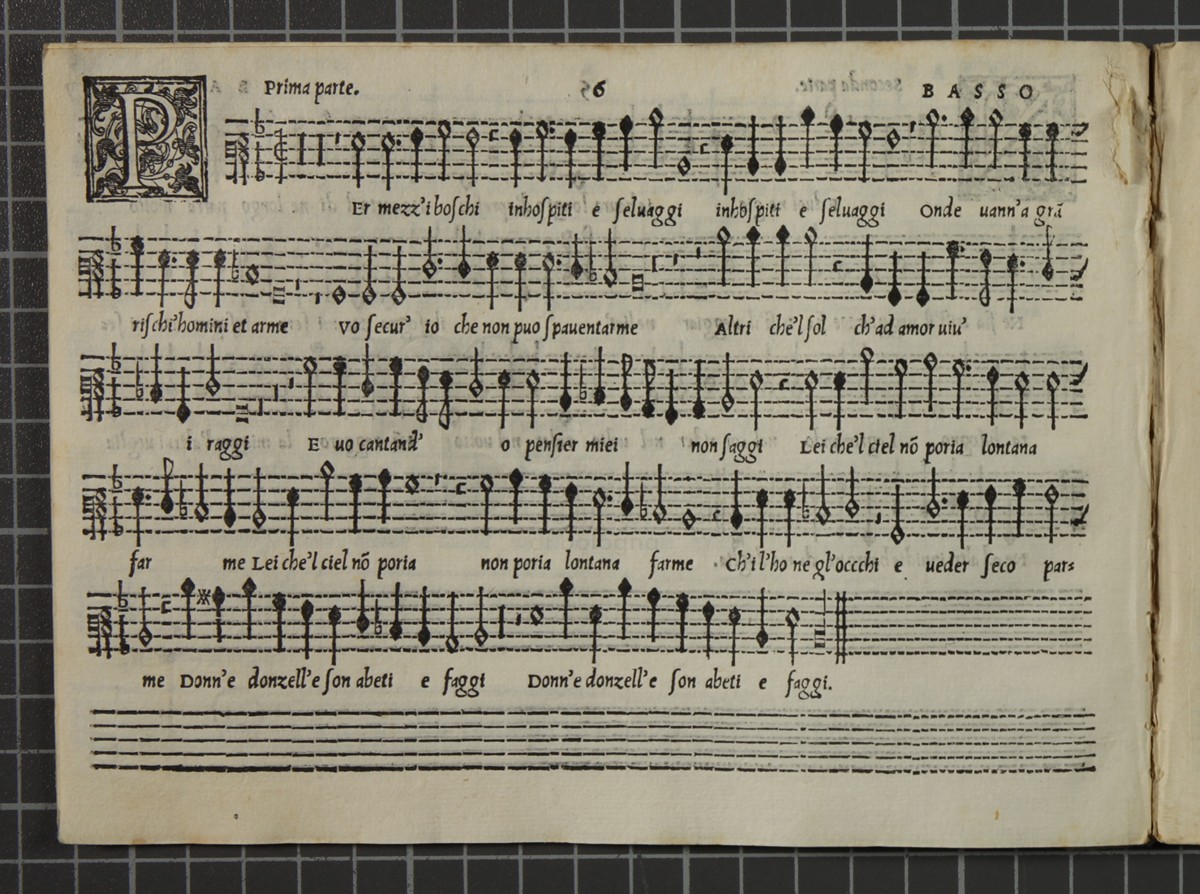 Prima parte. 6 BASSO
PEr mezz'i boschi inhospiti e seluaggi inhospiti e seluaggi Onde uann'a grã
rischi'homini et arme Vo secur' io che non puo spauentarme Altri che'l sol ch'ad amor uiu'
i raggi E uo cantand' o pensier miei non saggi Lei che'l ciel nõ poria lontana
far me Lei che'l ciel nõ poria non poria lontana farme Ch'i l'ho ne gl'occchi e ueder seco par=
me Donn'e donzell'e son abeti e faggi Donn'e donzell'e son abeti e faggi.